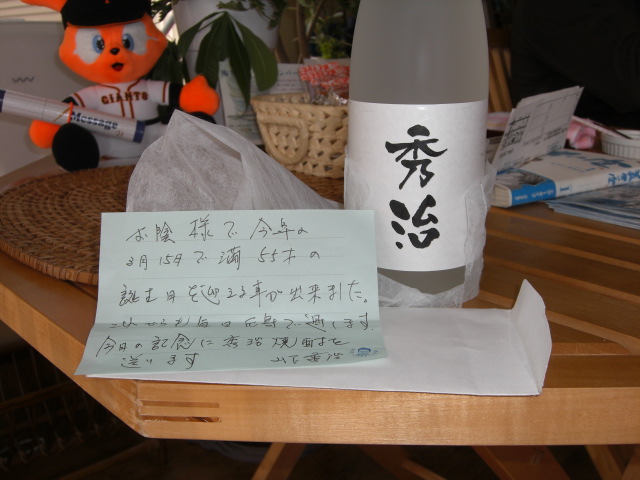 GIANTS
Message
秀治
お陰様で今年の
3月15日で満55才の
誕生日を迎える事が出来ました。
これからも毎日元気で過します
今日の記念に秀治焼酎を
送ります 山下秀治